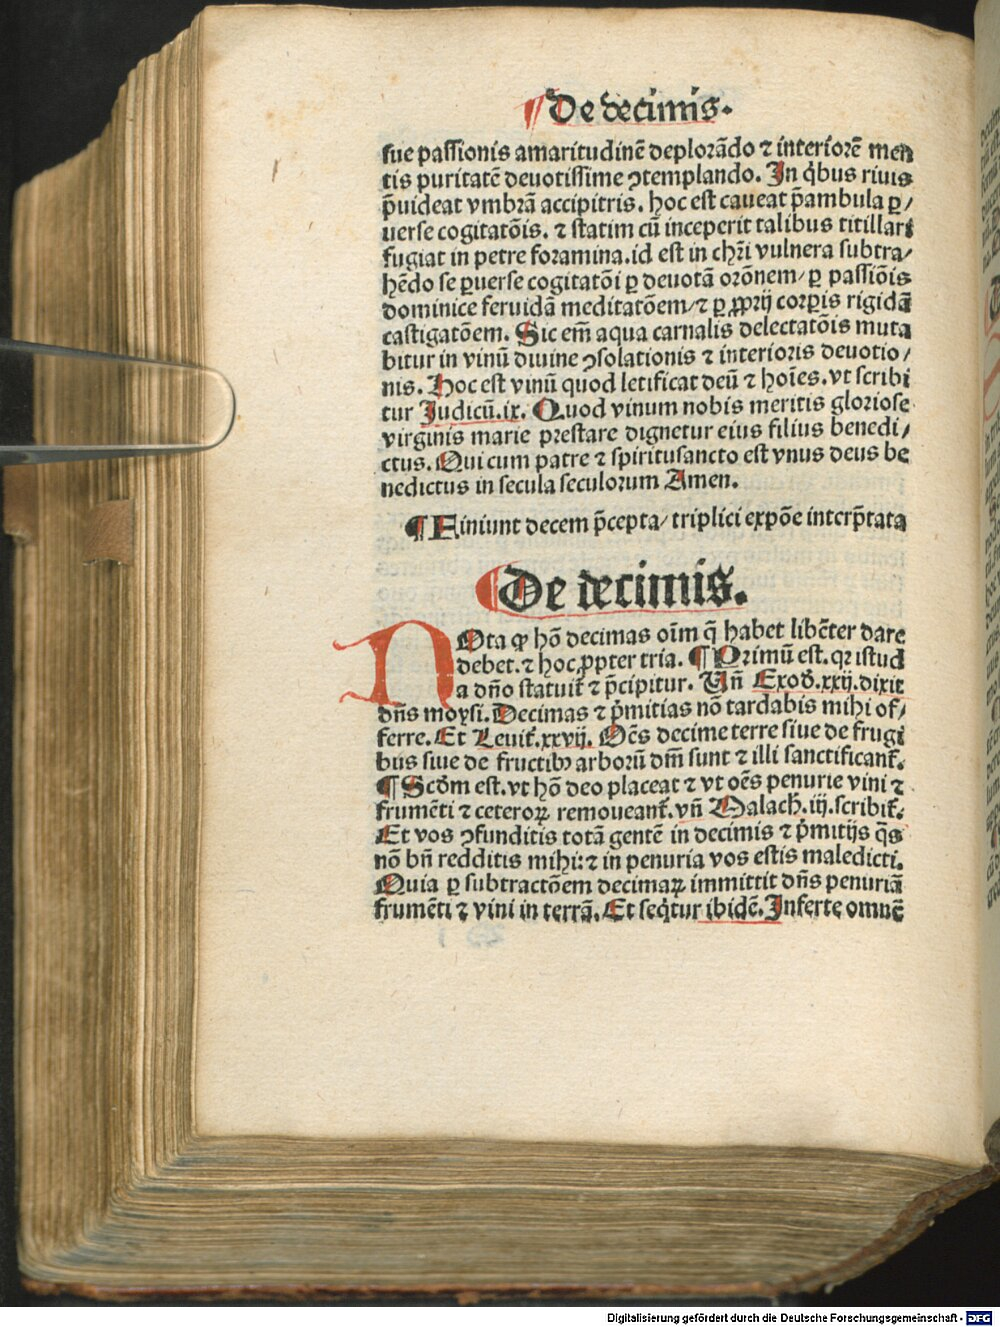 ¶ De decimis.
sue passionis amaritudinē deplorādo ⁊ interiorē men
tis puritatē deuotissime ꝯtemplando. In q̇bus riuis
p̄uideat vmbrā accipitris. hoc est caueat p̄ambula ꝑ/
uerse cogitatōis. ⁊ statim cū inceperit talibus titillari
fugiat in petre foramina. id est in chr̄i vulnera subtra/
hēdo se ꝑuerse cogitatōi ꝑ deuotā orōnem/ ꝑ passiōis
dominice feruidā meditatōem/ ⁊ ꝑ ꝓprij corꝑis rigidā
castigatōem. Sic em̄ aqua carnalis delectatōis muta
bitur in vinū diuine ꝯsolationis ⁊ interioris deuotio/
nis. Hoc est vinū quod letificat deū ⁊ hoīes. vt scribi
tur Judicū. ix. Quod vinum nobis meritis gloriose
virginis marie prestare dignetur eius filius benedi/
ctus. Qui cum patre ⁊ spiritusancto est vnus deus be
nedictus in secula seculorum Amen.
¶ Finiunt decem p̄cepta/ triplici expōe interp̄tata
¶ De decimis.
NOta ꝙ hō decimas oīm q̄ habet libēter dare
debet. ⁊ hoc ꝓpter tria. ¶ Primū est. qꝛ istud
a dn̄o statuit̄ ⁊ p̄cipitur. Vn̄ Exod̄. xxij. dixit
dn̄s moysi. Decimas ⁊ ṗmitias nō tardabis mihi of/
ferre. Et Leuit̄. xxvij. Oēs decime terre siue de frugi
bus siue de fructibꝫ arborū dn̄i sunt ⁊ illi sanctificant̄.
¶ Scd̄m est. vt hō deo placeat ⁊ vt oēs penurie vini ⁊
frumēti ⁊ ceteroꝝ remoueant̄. vn̄ Malach̄. iij. scribit̄.
Et vos ꝯfunditis totā gentē in decimis ⁊ ṗmitijs q̄s
nō bn̄ redditis mihi: ⁊ in penuria vos estis maledicti.
Quia ꝑ subtractōem decimaꝝ immittit dn̄s penuriā
frumēti ⁊ vini in terrā. Et seq̇tur ibidē. Inferte omnē
Digitalisierung gefördert durch die Deutsche Forschungsgemeinschaft - DFG